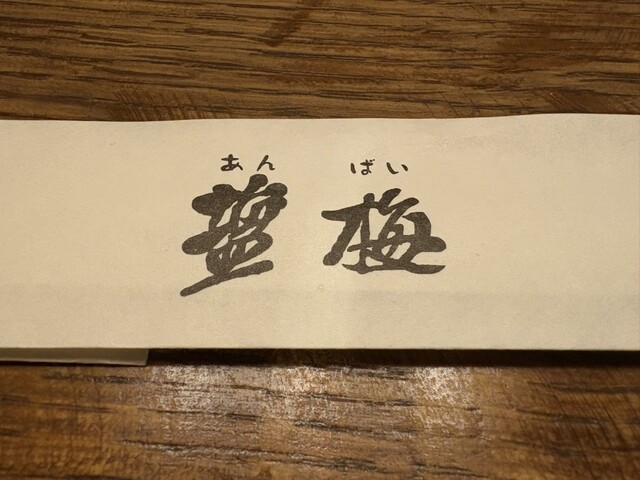 あんばい
塩梅